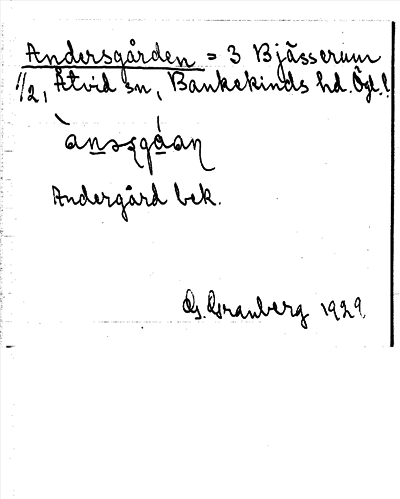 Andersgården = 3 Bjässerum
1/2, Åtvid sn, Bankekinds hd. Ögl.!
Andergård bek.
G. Granberg 1929